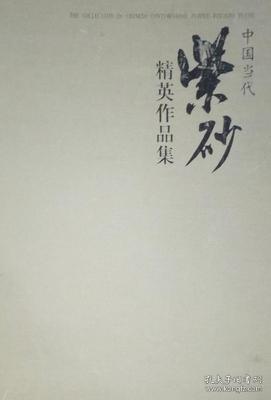 THE COLLECTION OF CHINESE CONTEMPORARY PURPLE
中国当代
紫砂
精英作品集
孔夫子旧书网